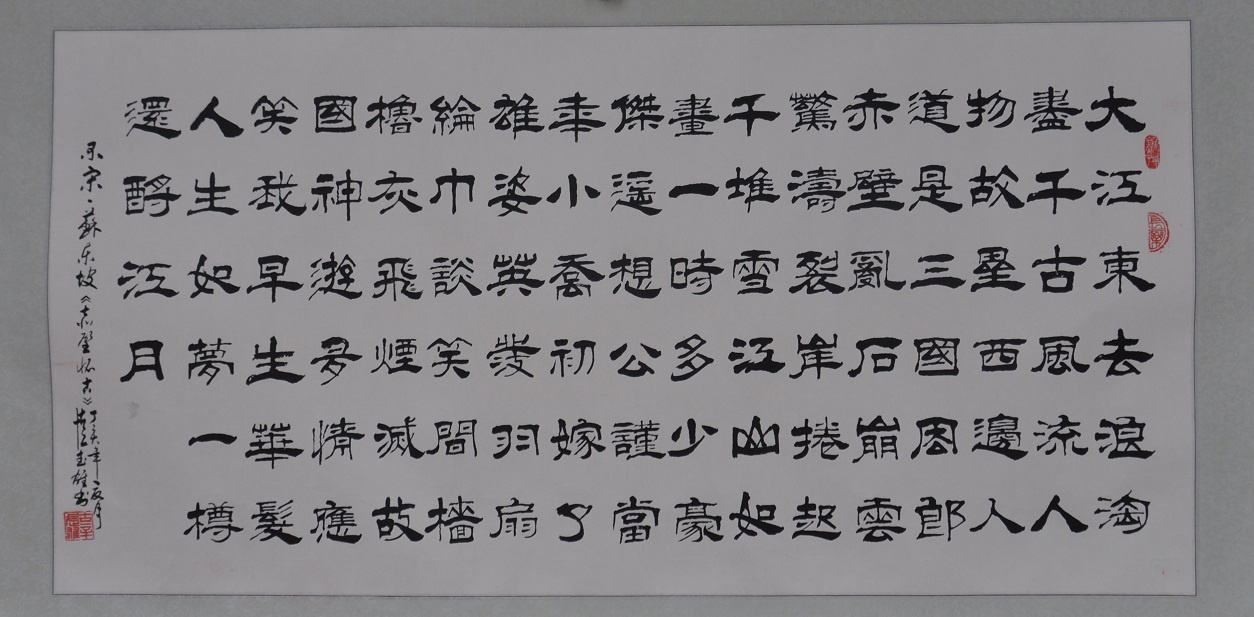 大江東去浪淘
盡千古風流人
物故壘西邊人
道是三國周郎
赤壁亂石崩雲
驚濤裂岸捲起
千堆雪江山如
畫一時多少豪
傑遥想公謹當
年小喬初嫁了
雄姿英發羽扇
綸巾談笑間檣
櫓灰飛煙滅故
國神遊多情應
笑我早生華髮
人生如夢一樽
還酹江月
录宋·蘇东坡《赤壁怀古》
丁亥年夏月
雄书